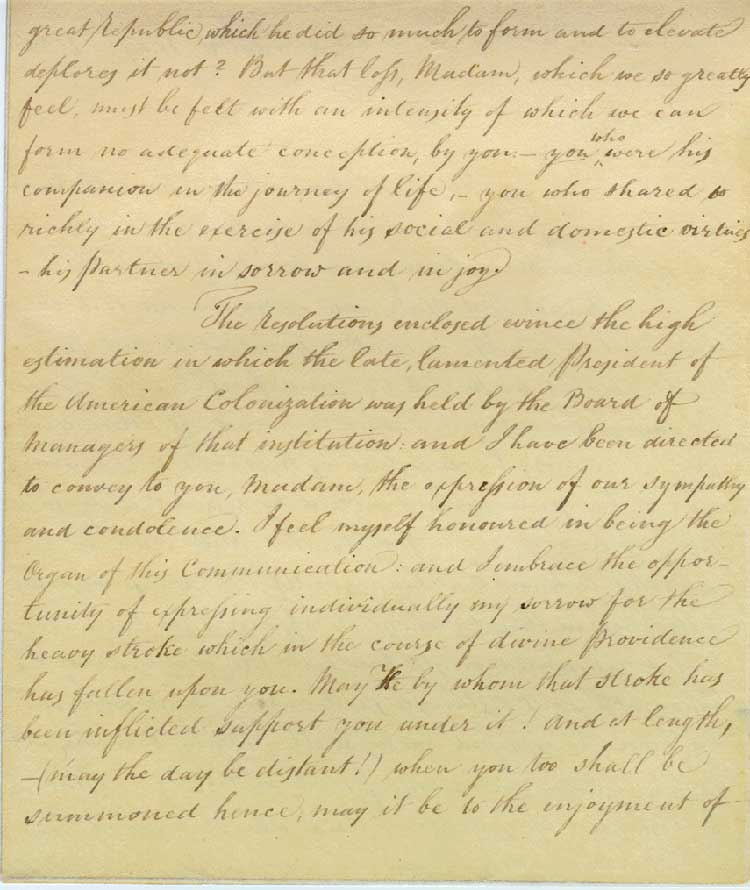 great Republic, which he did so much, to form and to elevate
deplores it not? But that loss, Madam, which we so greatly
feel, must be felt with an intensity of which we can
form no adequate conception, by you:— you, who were his
companion in the journey of life,— you who shared so
richly in the exercise of his social and domestic virtues
— his partner in sorrow and in joy.
The Resolutions enclosed evince the high
estimation in which the late, lamented, President of
the American Colonization was held by the Board of
Managers of that institution: and I have been directed
to convey to you, Madam, the expression of our sympathy
and condolence. I feel myself honoured in being the
Organ of this Communication: and I embrace the oppor-
tunity of expressing individually my sorrow for the
heavy stroke which in the course of divine Providence
has fallen upon you. May He by whom that stroke has
been inflicted support you under it! and at length,
—(may the day be distant!) when you too shall be
summoned hence, may it be to the enjoyment of